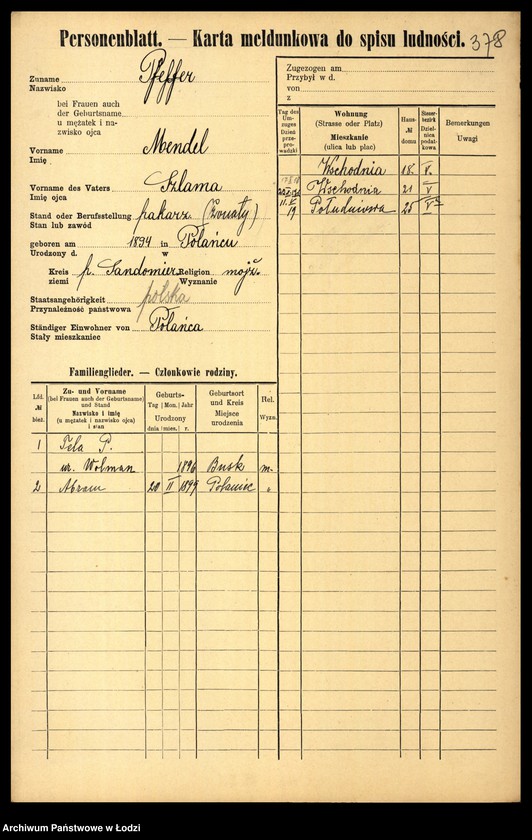 Personenblatt. — Karta meldunkowa do spisu ludności. 378
Zuname Pfeffer
Nazwisko
bei Frauen auch
der Geburtsname
u mężatek i na-
zwisko ojca
Vorname Mendel
Imię
Vorname des Vaters Szlama
Imię ojca
Stand oder Berufsstellung piekarz (żonaty)
Stan lub zawód
geboren am 1894 in Połańcu
Urodzony d. w
Kreis p. Sandomierz Religion mojż.
ziemi Wyznanie
Staatsangehörigkeit polska
Przynależność państwowa
Ständiger Einwohner von Połańca
Stały mieszkaniec
Familienglieder. — Członkowie rodziny.
Lfd. № bież.
Zu- und Vorname
(bei Frauen auch der Geburtsname)
und Stand
Nazwisko i imię
(u mężatek i nazwisko ojca)
i stan
Geburts-
Tag Mon. Jahr
Urodzony
dnia mies. r.
Geburtsort
und Kreis
Miejsce
urodzenia
Rel.
Wyzn.
1 Fela P.
ur. Wolman 1896 Busk m.
2 Abram 20 II 1899 Połaniec "
Zugezogen am
Przybył w d.
von
z
Tag des
Um-
zuges
Dzień
prze-
prowadzki
Wohnung
(Strasse oder Platz)
Mieszkanie
(ulica lub plac)
Haus-
№
domu
Steuer-
bezirk
Dziel-
nica
podat-
kowa
Bemerkungen
Uwagi
Wschodnia 18. V.
Wschodnia 21 V
19 Południowa 25 V